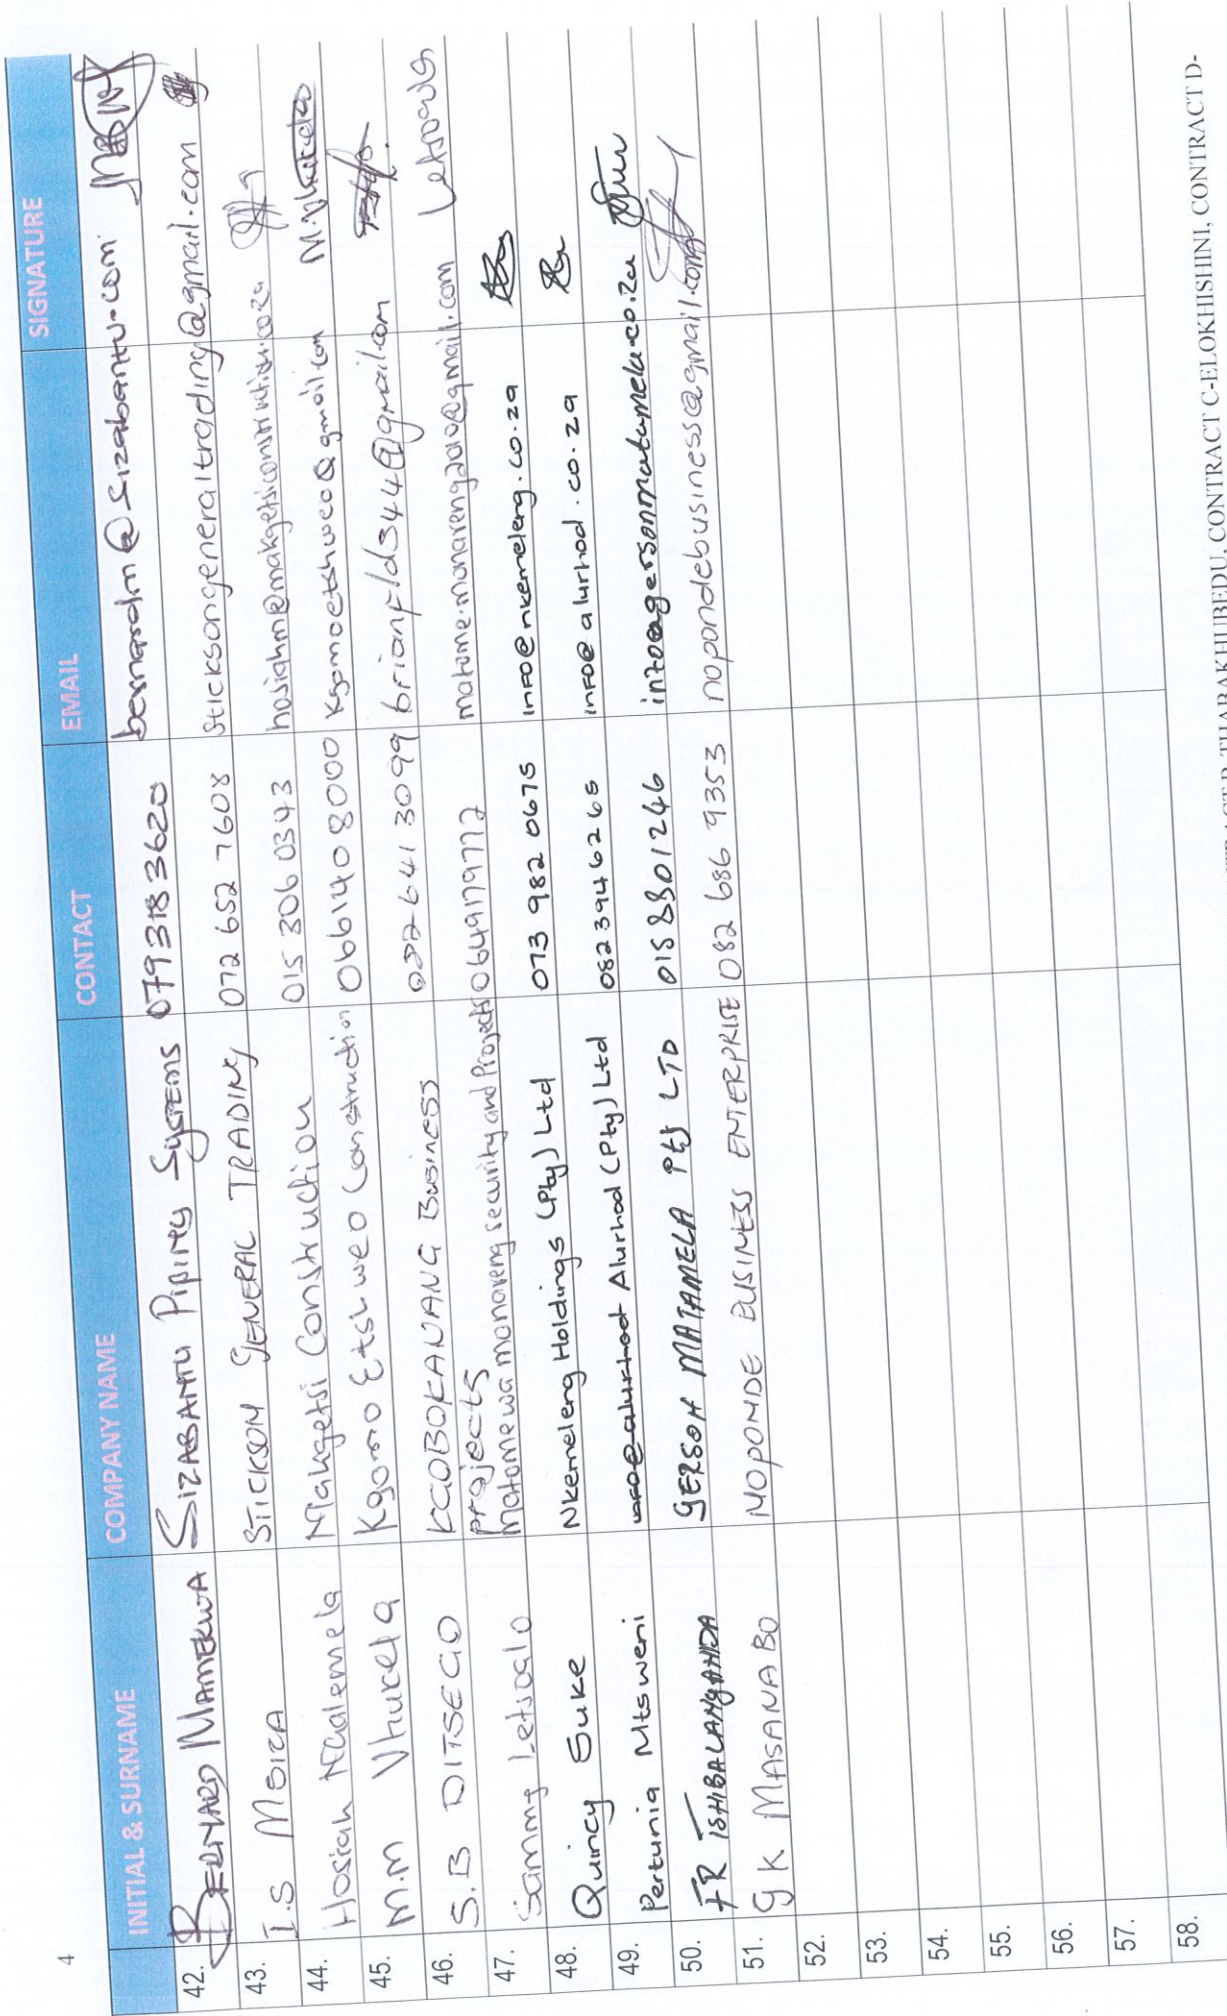 4
INITIAL & SURNAME COMPANY NAME CONTACT EMAIL SIGNATURE
42. BERNARD MAMEKWA SIZABANTU PIPING SYSTEMS 0793183620 bernardm@sizabantu.com
43. I.S MSIZA STICKSON GENERAL TRADING 072 652 7608 sticksongeneraltrading@gmail.com
44. Hosiah Makgetsi Construction 015 306 0343 hosiahm@makgetsiconstruction.co.za
45. M.M Vhukela Kgomo Etshweo Construction 0661408000 Kgomoetshweo@gmail.com
46. S.B DITSEGO KGOBOKANANG Business Projects 082 641 3099 brianfld344@gmail.com
47. Sammy Letsoalo Matome wa monareng security and Projects 0649179772 matome.monareng2010@gmail.com Letsoalo
48. Quincy Suke Nkemeleng Holdings (Pty) Ltd 073 982 0675 info@nkemeleng.co.za
49. Pertunia Mtsweni info@alurhod Alurhod (Pty) Ltd 082 394 6265 info@alurhod.co.za
50. FR TSHIBALANGANDA GERSON MATAMELA Pty LTD 015 8301246 info@gersonmatamela.co.za
51. G K MASANABO NOPONDE BUSINESS ENTERPRISE 082 686 9353 nopondebusiness@gmail.com
52.
53.
54.
55.
56.
57.
58.
THABAKHUBEDU, CONTRACT C-ELOKHISHINI, CONTRACT D-